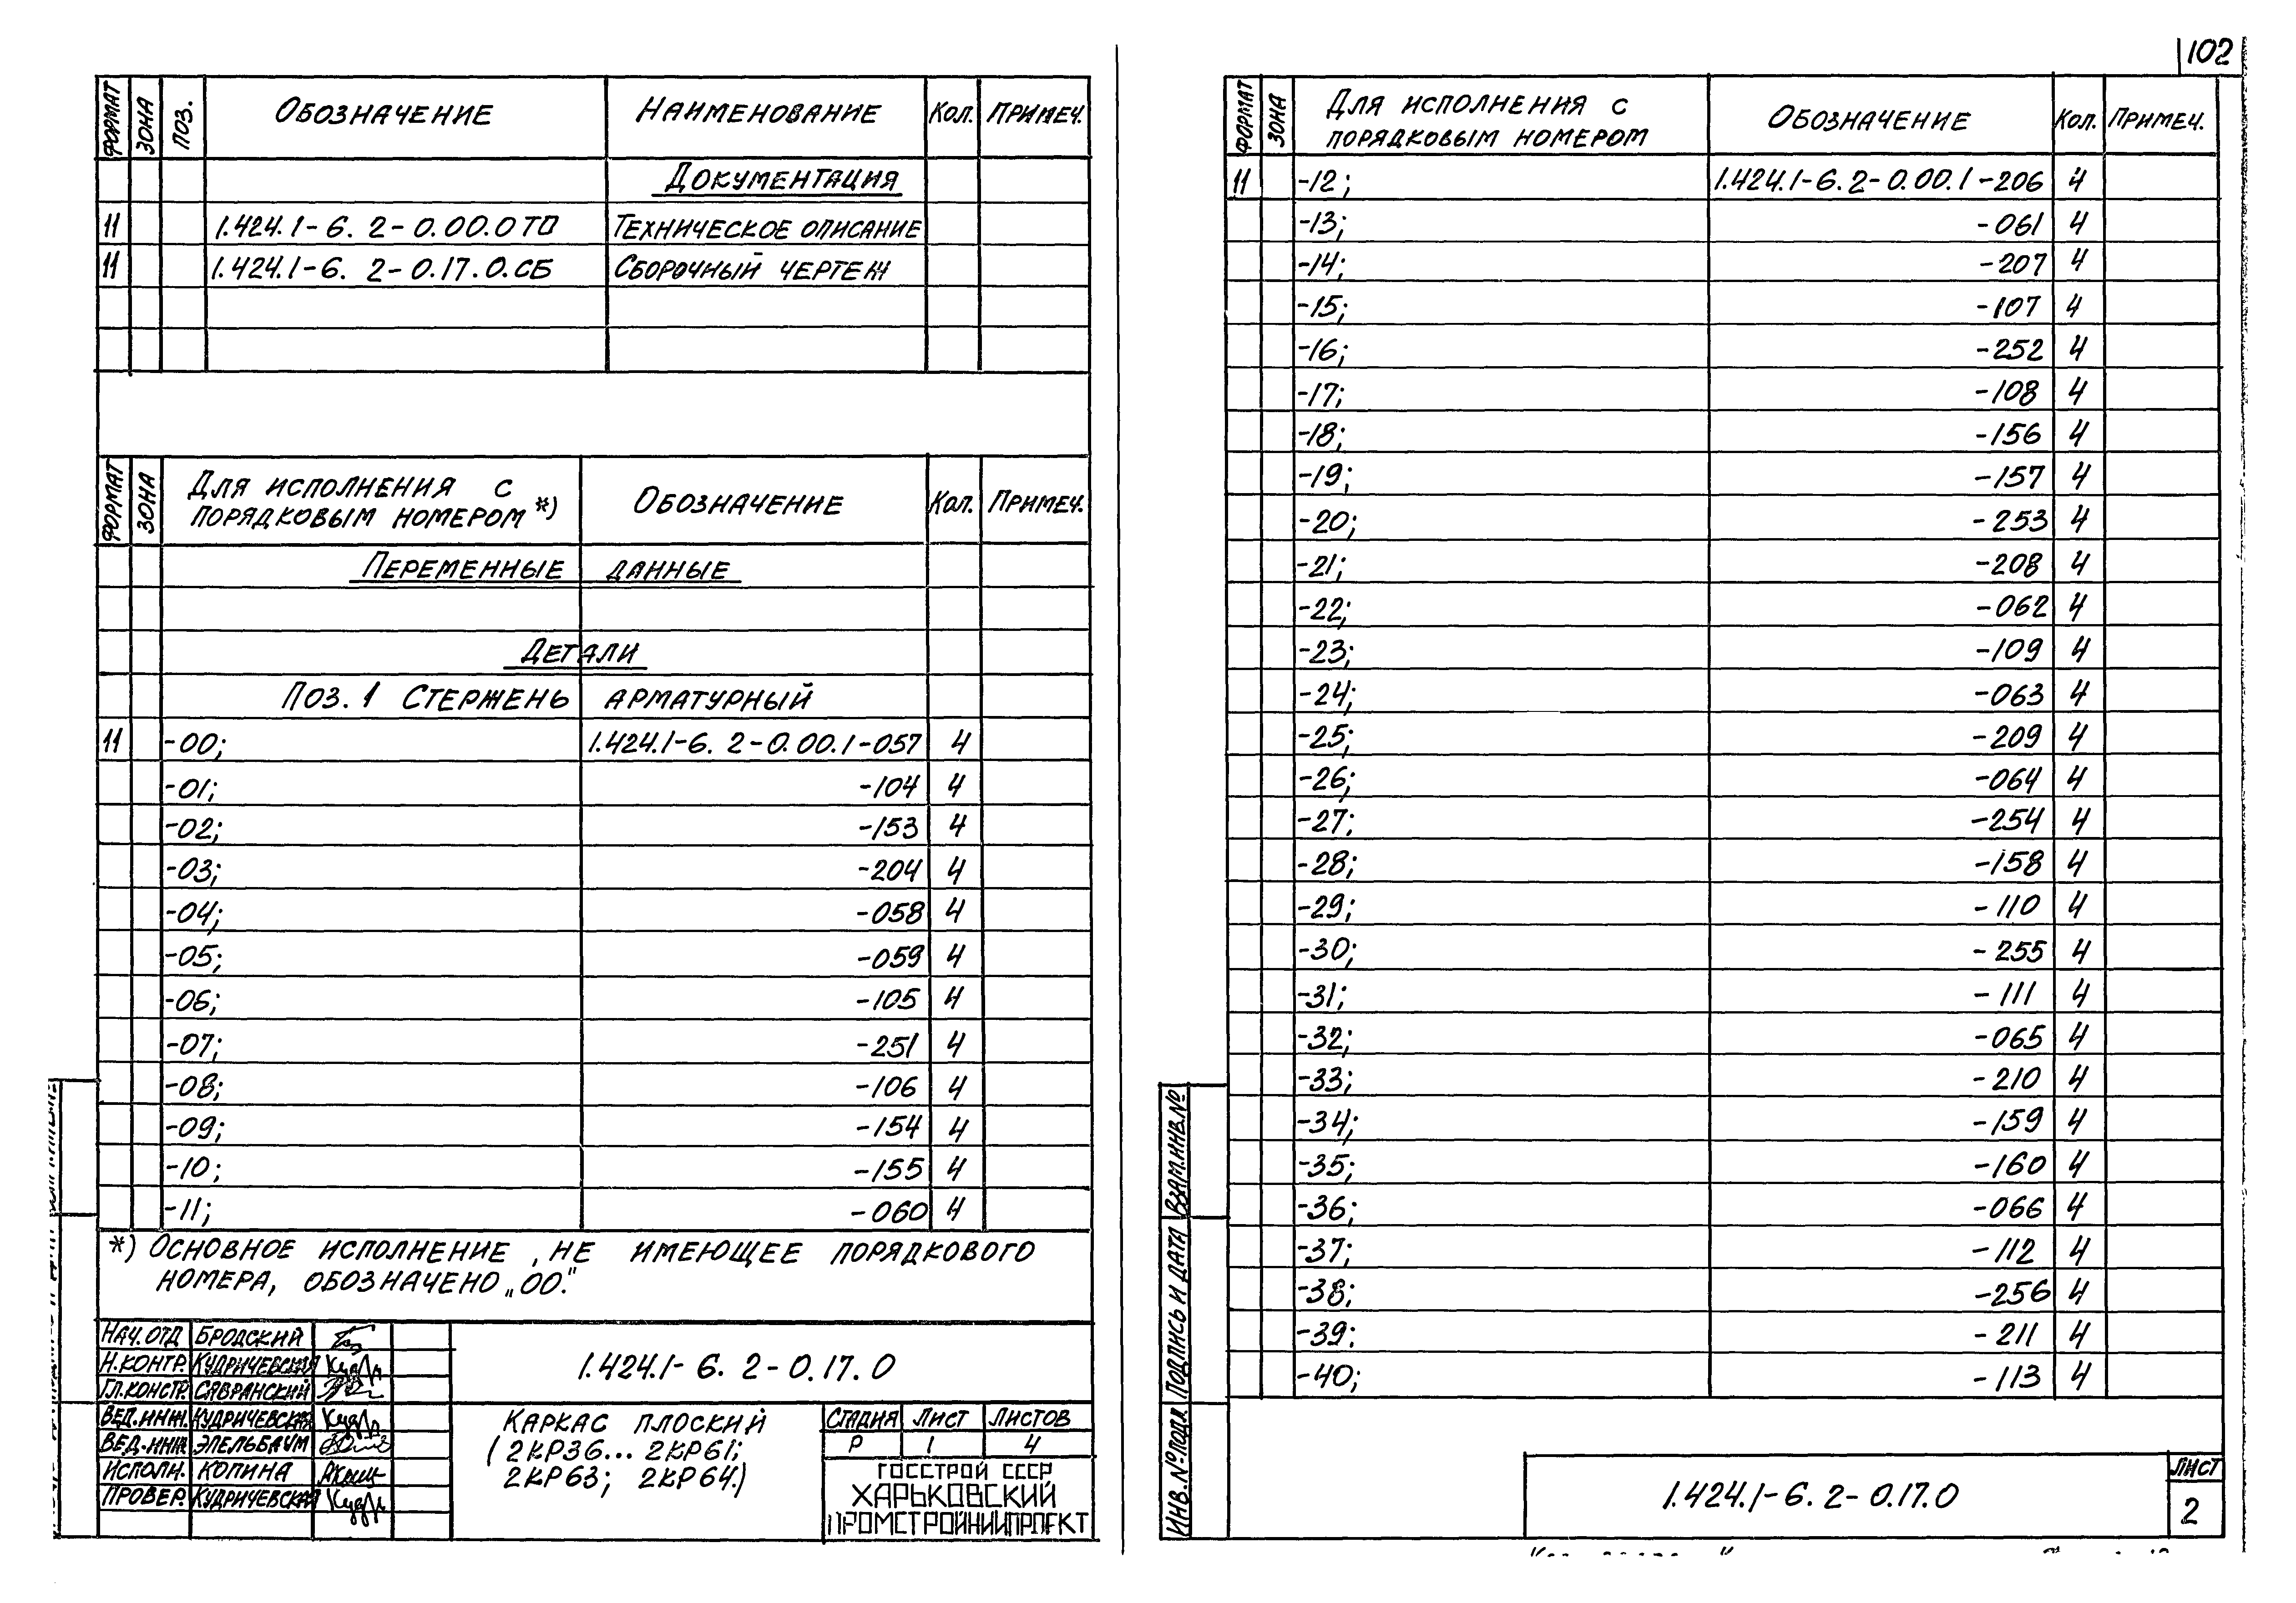 102
ФОРМАТ ЗОНА ПОЗ. ОБОЗНАЧЕНИЕ НАИМЕНОВАНИЕ КОЛ. ПРИМЕЧ.
ДОКУМЕНТАЦИЯ
11 1.424.1-6. 2-0.00.0 ТО ТЕХНИЧЕСКОЕ ОПИСАНИЕ
11 1.424.1-6. 2-0.17.0.СБ СБОРОЧНЫЙ ЧЕРТЕЖ
ФОРМАТ ЗОНА ДЛЯ ИСПОЛНЕНИЯ С ПОРЯДКОВЫМ НОМЕРОМ *) ОБОЗНАЧЕНИЕ КОЛ. ПРИМЕЧ.
ПЕРЕМЕННЫЕ ДАННЫЕ
ДЕТАЛИ
ПОЗ. 1 СТЕРЖЕНЬ АРМАТУРНЫЙ
11 -00; 1.424.1-6. 2-0.00.1-057 4
-01; -104 4
-02; -153 4
-03; -204 4
-04; -058 4
-05; -059 4
-06; -105 4
-07; -251 4
-08; -106 4
-09; -154 4
-10; -155 4
-11; -060 4
*) ОСНОВНОЕ ИСПОЛНЕНИЕ, НЕ ИМЕЮЩЕЕ ПОРЯДКОВОГО
НОМЕРА, ОБОЗНАЧЕНО „00."
НАЧ. ОТД БРОДСКИЙ
Н.КОНТР. КУДРИЧЕВСКАЯ
ГЛ.КОНСТР. САВРАНСКИЙ
ВЕД.ИНЖ. КУДРИЧЕВСКАЯ
ВЕД.ИНЖ ЭПЕЛЬБАУМ
ИСПОЛН. КОПИНА
ПРОВЕР. КУДРИЧЕВСКАЯ
1.424.1-6. 2-0.17.0
КАРКАС ПЛОСКИЙ
(2КР36... 2КР61;
2КР63; 2КР64.)
СТАДИЯ ЛИСТ ЛИСТОВ
Р 1 4
ГОССТРОЙ СССР
ХАРЬКОВСКИЙ
ПРОМСТРОЙНИИПРОЕКТ
ФОРМАТ ЗОНА ДЛЯ ИСПОЛНЕНИЯ С ПОРЯДКОВЫМ НОМЕРОМ ОБОЗНАЧЕНИЕ КОЛ. ПРИМЕЧ.
11 -12; 1.424.1-6. 2-0.00.1-206 4
-13; -061 4
-14; -207 4
-15; -107 4
-16; -252 4
-17; -108 4
-18; -156 4
-19; -157 4
-20; -253 4
-21; -208 4
-22; -062 4
-23; -109 4
-24; -063 4
-25; -209 4
-26; -064 4
-27; -254 4
-28; -158 4
-29; -110 4
-30; -255 4
-31; -111 4
-32; -065 4
-33; -210 4
-34; -159 4
-35; -160 4
-36; -066 4
-37; -112 4
-38; -256 4
-39; -211 4
-40; -113 4
ИНВ.№ПОДЛ. ПОДПИСЬ И ДАТА ВЗАМ.ИНВ.№
1.424.1-6. 2-0.17.0
ЛИСТ
2